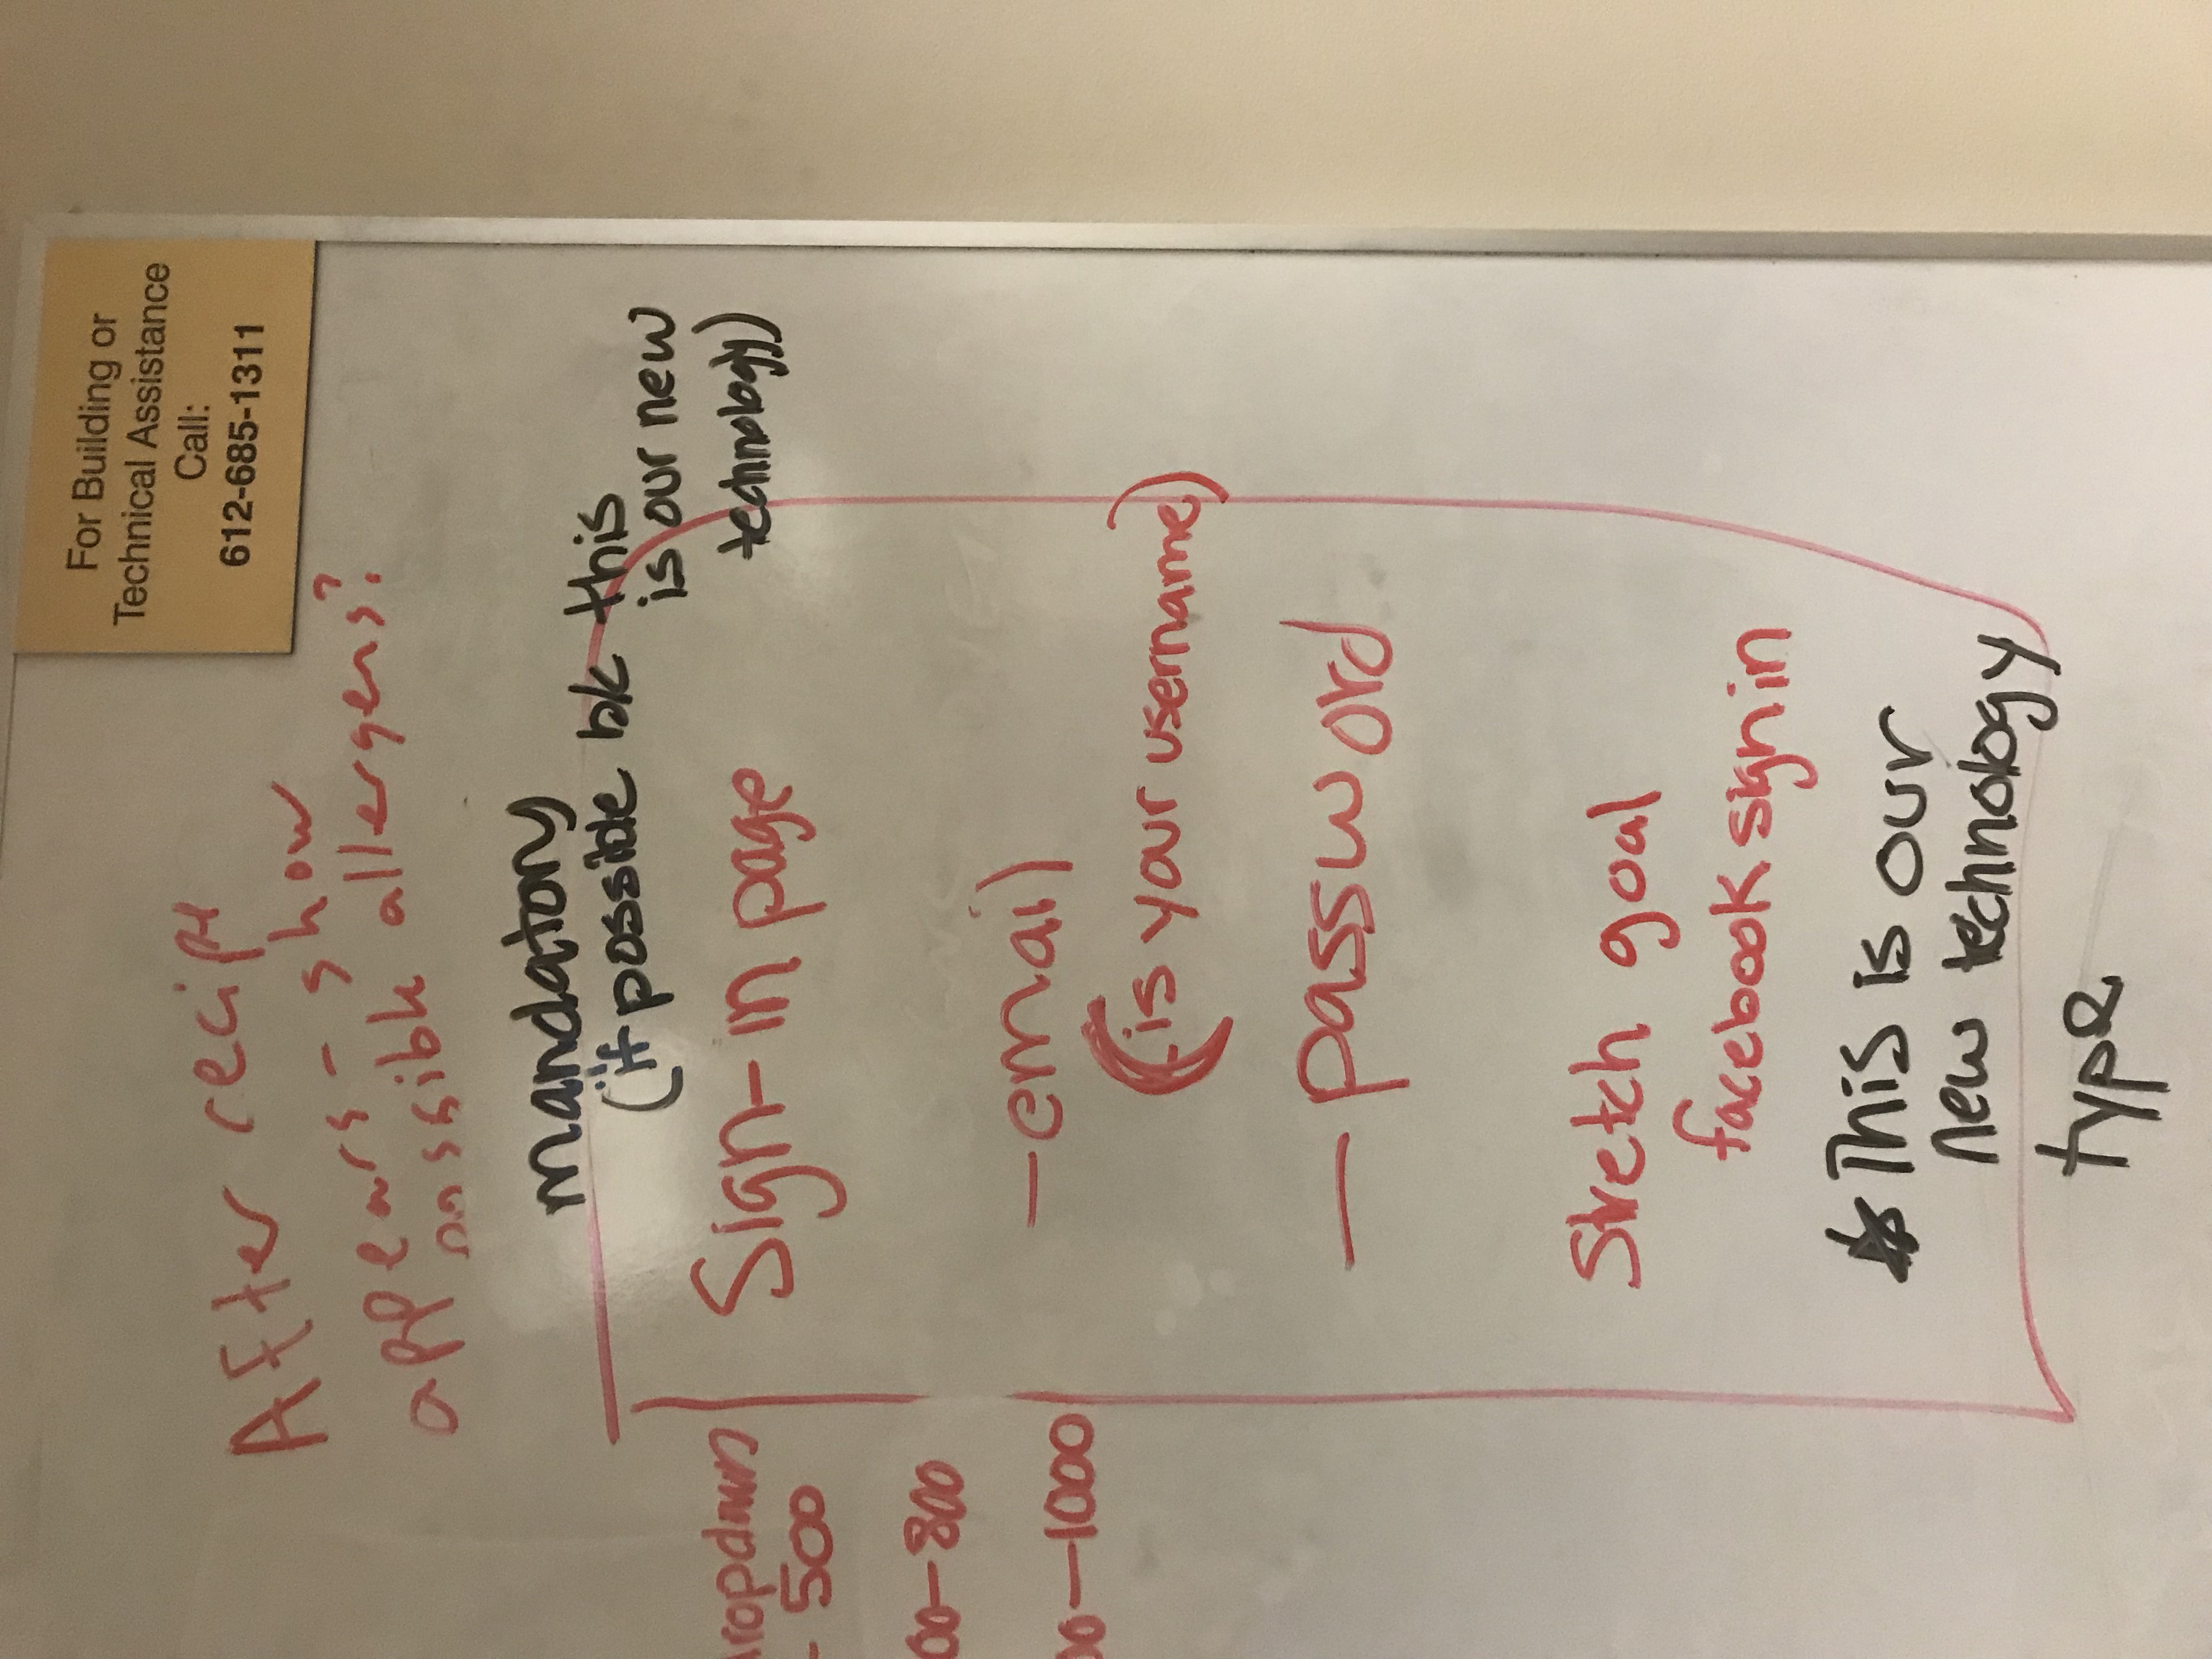 For Building or
Technical Assistance
Call:
612-685-1311
After recipe
appears - show
possible allergens?
mandatory
(if possible b/c this
is our new
technology)
ropdown
- 500
00-800
00-1000
Sign-in page
-email
(is your username)
- password
Stretch goal
facebook sign in
* This is our
new technology
type